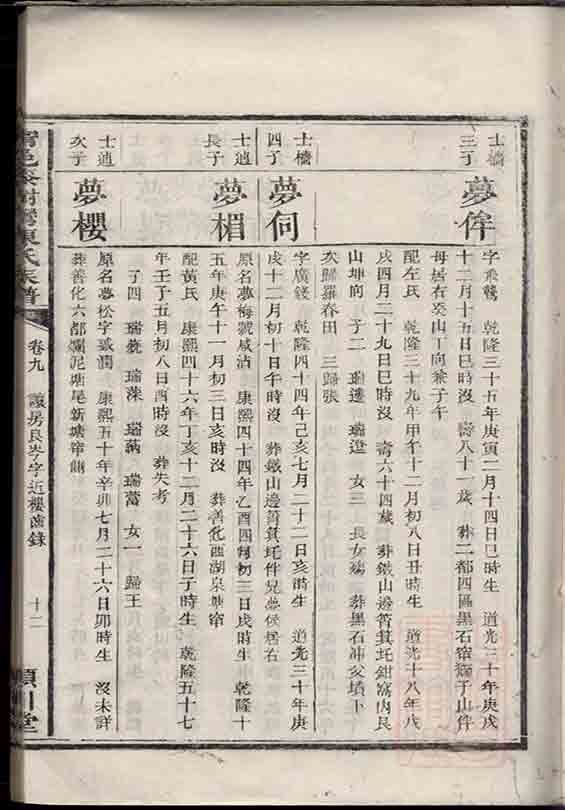 士檣三子
夢侔
字乘鷺 乾隆三十五年庚寅二月十四日巳時生 道光三十年庚戌
十二月十五日巳時沒 壽八十一歲 葬二都四區黑石窜獅子山伴
母居右癸山丁向兼子午
配左氏 乾隆三十九年甲午十二月初八日丑時生 道光十八年戊
戌四月二十九日巳時沒 壽六十四歲 葬鐵山邊箵箕托鉗窩內艮
山坤向 子二 瑞 瑞澄 女三 長女殤 葬黑石冲父墳下
次歸羅春田 三歸張
士檣四子
夢伺
字廣錢 乾隆四十四年己亥七月二十二日亥時生 道光三十年庚
戌十二月初十日午時沒 葬鐵山邊箵箕托伴兄夢侯居右
士逍長子
夢楣
原名夢梅號咸沽 康熙四十四年乙酉四月初三日戌時生 乾隆十
五年庚午十一月初三日亥時沒 葬善化西湖泉塘窜
配黃氏 康熙四十六年丁亥十二月二十六日子時生 乾隆五十七
年壬子五月初八日酉時沒 葬失考
子四 瑞 瑞 瑞 瑞 女一 歸王
士逍次子
夢櫻
原名夢松字 潤 康熙五十年辛卯七月二十六日卯時生 沒未詳
葬善化六都爛泥塘尾新塘窜側
陳氏族譜
卷九 房良岑字近樓齒錄
十二
潁川堂